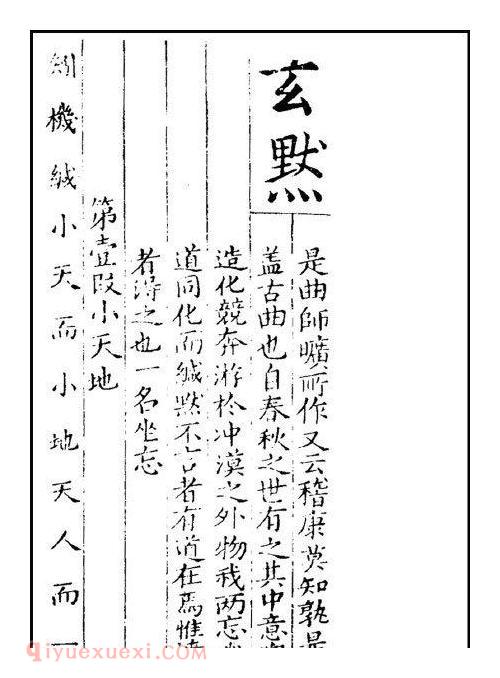 玄默
是曲師曠所作又云稽康莫知孰是
盖古曲也自春秋之世有之其中意
造化競奔游於冲漠之外物我两忘
道同化而緘默不言者有道在焉惟
者得之也一名坐忘
第壹段小天地
機緘小天而小地天人而一
qiyuexuexi.COM